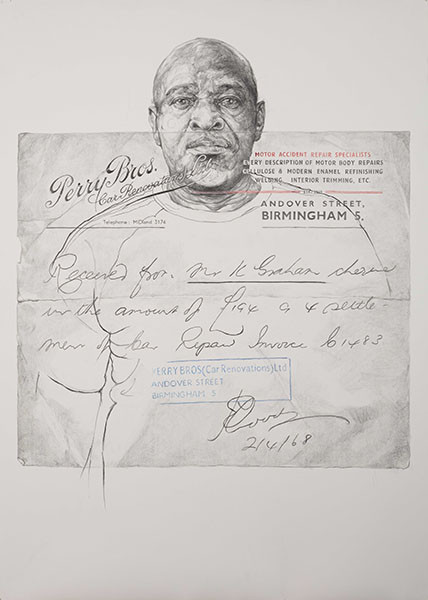 Perry Bros.
Car Renovations Ltd
Telephone: MIDland 3176
MOTOR ACCIDENT REPAIR SPECIALISTS
EVERY DESCRIPTION OF MOTOR BODY REPAIRS
CELLULOSE & MODERN ENAMEL REFINISHING
WELDING, INTERIOR TRIMMING, ETC.
ANDOVER STREET,
BIRMINGHAM 5.
Received from Mr K Graham cheque
in the amount of £194 as a settle-
ment of Car Repair Invoice 1483
PERRY BROS (Car Renovations) Ltd
ANDOVER STREET
BIRMINGHAM 5
2/4/68